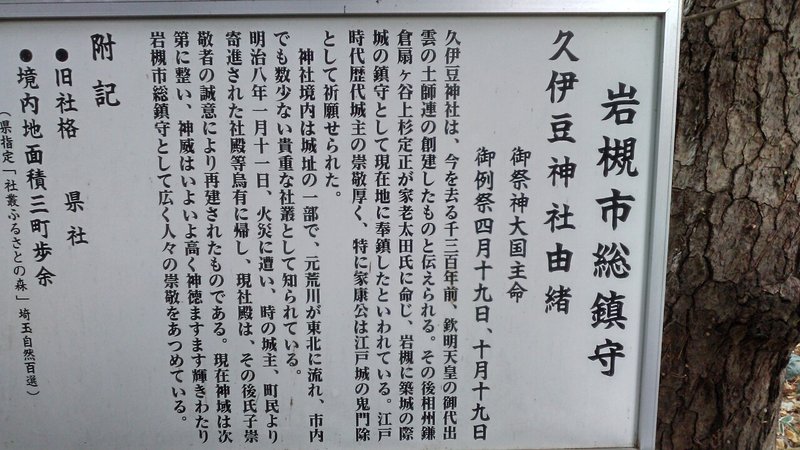 岩槻市総鎮守
久伊豆神社由緒
御祭神大国主命
御例祭四月十九日、十月十九日
久伊豆神社は、今を去る千三百年前、欽明天皇の御代出
雲の土師連の創建したものと伝えられる。その後相州鎌
倉扇ヶ谷上杉定正が家老太田氏に命じ、岩槻に築城の際
城の鎮守として現在地に奉鎮したといわれている。江戸
時代歴代城主の崇敬厚く、特に家康公は江戸城の鬼門除
として祈願せられた。
神社境内は城址の一部で、元荒川が東北に流れ、市内
でも数少ない貴重な社叢として知られている。
明治八年一月十一日、火災に遭い、時の城主、町民より
寄進された社殿等烏有に帰し、現社殿は、その後氏子崇
敬者の誠意により再建されたものである。現在神域は次
第に整い、神威はいよいよ高く神徳ますます輝きわたり
岩槻市総鎮守として広く人々の崇敬をあつめている。
附記
●旧社格 県社
●境内地面積三町歩余
(県指定「社叢ふるさとの森」埼玉自然百選)